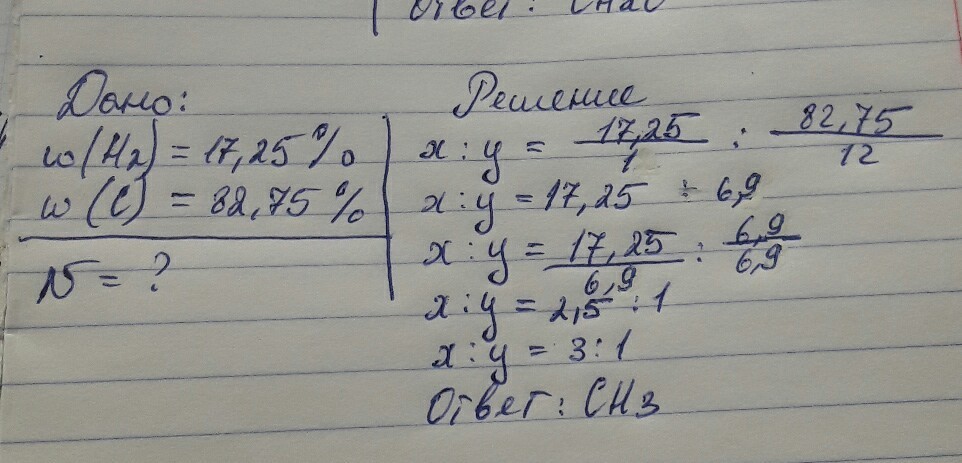 Ответ: CH2O
Дано:
w(H2) = 17,25%
w(C) = 82,75%
N = ?
Решение
x : y = 17,25/1 : 82,75/12
x : y = 17,25 ÷ 6,9
x : y = 17,25/6,9 : 6,9/6,9
x : y = 2,5 : 1
x : y = 3 : 1
Ответ: CH3